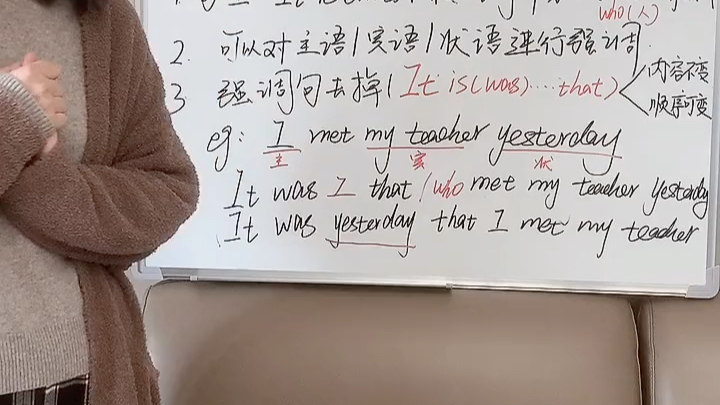 who(人)
2. 可以对主语/宾语/状语进行强调.
3 强调句去掉(It is(was)....that) 内容不变 顺序可变
eg: I met my teacher yesterday
主 宾 状
It was I that/who met my teacher yesterday
It was yesterday that I met my teacher